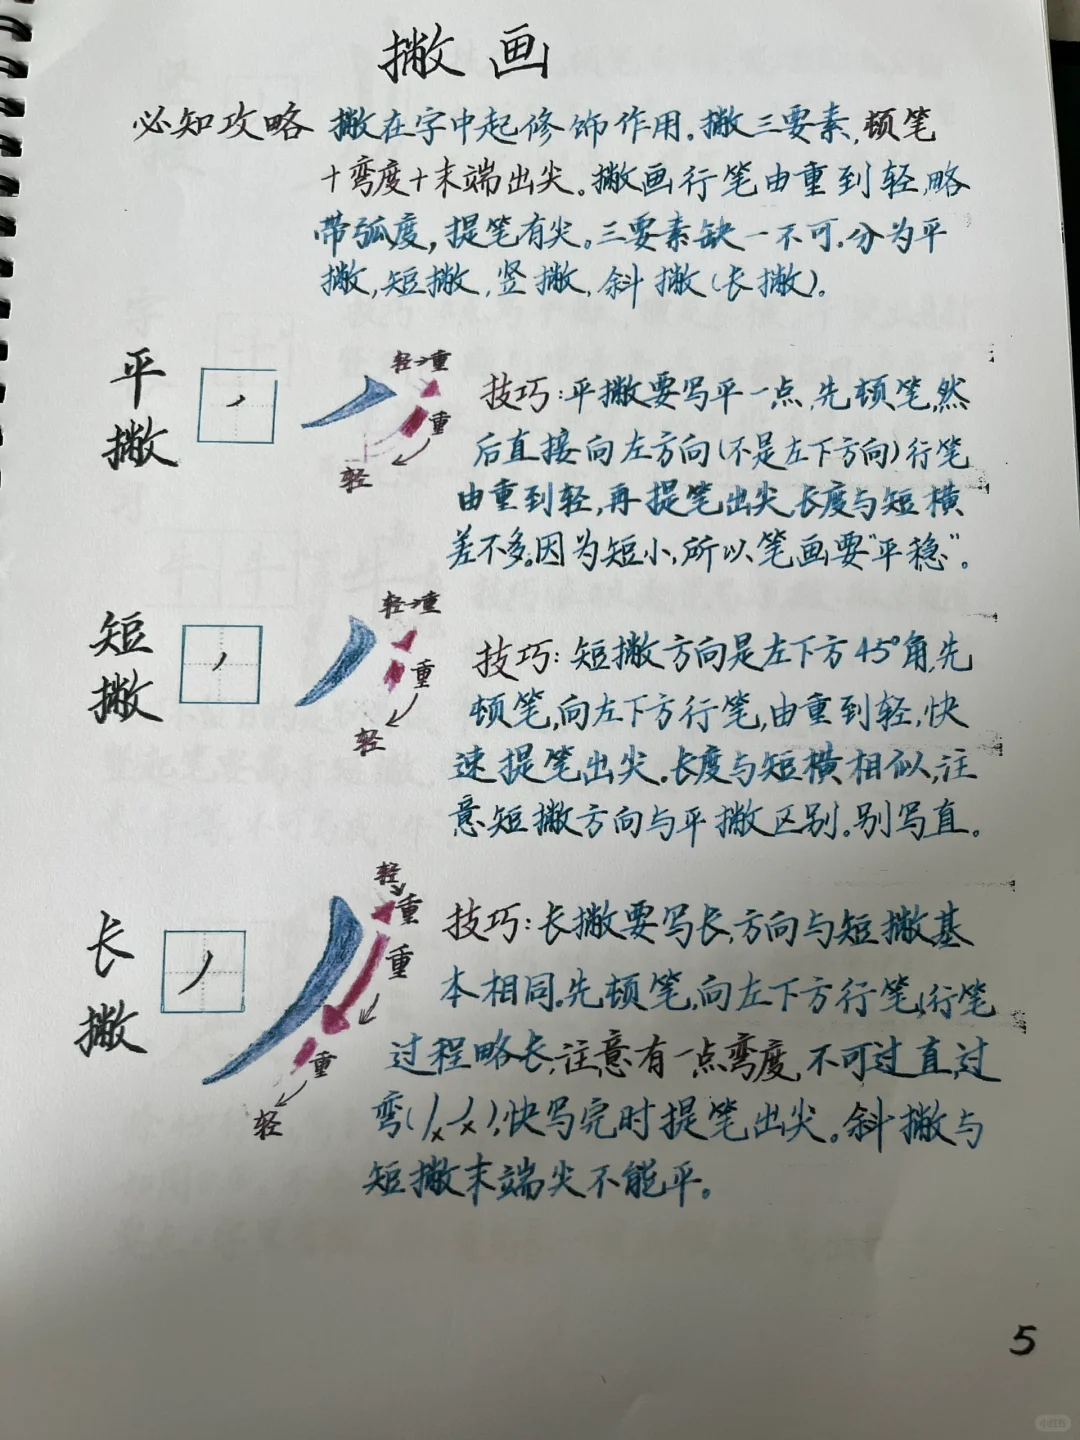 撇画
必知攻略 撇在字中起修饰作用。撇三要素,顿笔
+弯度+末端出尖。撇画行笔由重到轻,略
带弧度,提笔有尖。三要素缺一不可。分为平
撇,短撇,竖撇,斜撇(长撇)。
平撇
轻→重
重
轻
技巧:平撇要写平一点,先顿笔,然
后直接向左方向(不是左下方向)行笔
由重到轻,再提笔出尖,长度与短横
差不多。因为短小,所以笔画要“平稳”。
短撇
轻→重
重
轻
技巧:短撇方向是左下方45°角,先
顿笔,向左下方行笔,由重到轻,快
速提笔出尖。长度与短横相似,注
意短撇方向与平撇区别。别写直。
长撇
轻
重
重
重
轻
技巧:长撇要写长,方向与短撇基
本相同。先顿笔,向左下方行笔,行笔
过程略长,注意有一点弯度,不可过直,过
弯(丿×丿×),快写完时提笔出尖。斜撇与
短撇末端尖不能平。
5
小红书